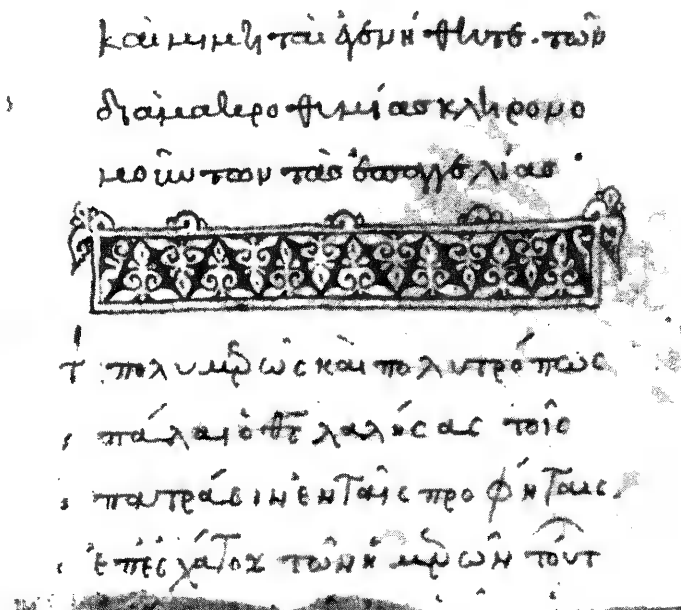 καὶ μιμηταὶ γενήθητε· τῶν
διὰ μακροθυμίας κληρονο
μούντων τὰς ἐπαγγελίας ·
πολυμερῶς καὶ πολυτρόπως
πάλαι ὁ θς λαλήσας τοῖς
πατράσιν ἐν ταῖς προφήταις,
ἐπ' ἐσχάτου τῶν ἡμερῶν τούτ